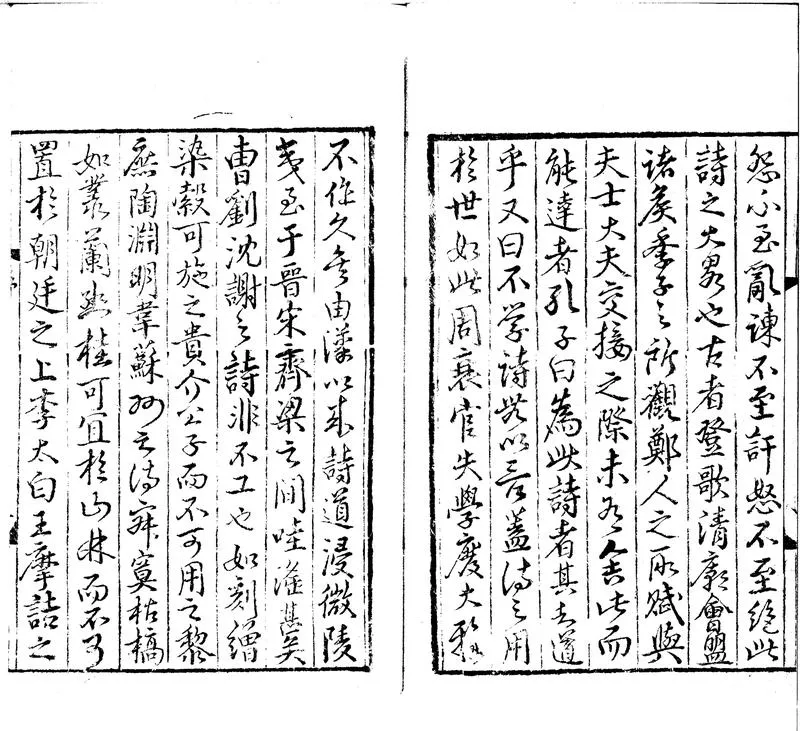 怨不至亂諫不至訐怒不至絕此
詩之大畧也古者登歌清廟會盟
諸侯季子之所觀鄭人之所賦與
夫士大夫交接之際未有舍此而
能達者孔子曰為此詩者其知道
乎又曰不學詩無以言蓋詩之用
於世如此周衰官失學廢大雅
不作久矣由漢以來詩道浸微陵
夷至于晉宋齊梁之間哇淫甚矣
曹劉沈謝之詩非不工也如刻繒
染縠可施之貴介公子而不可用之黎
庶陶淵明韋蘇州之詩寂寞枯槁
如叢蘭幽桂可宜於山林而不可
置於朝廷之上李太白王摩詰之